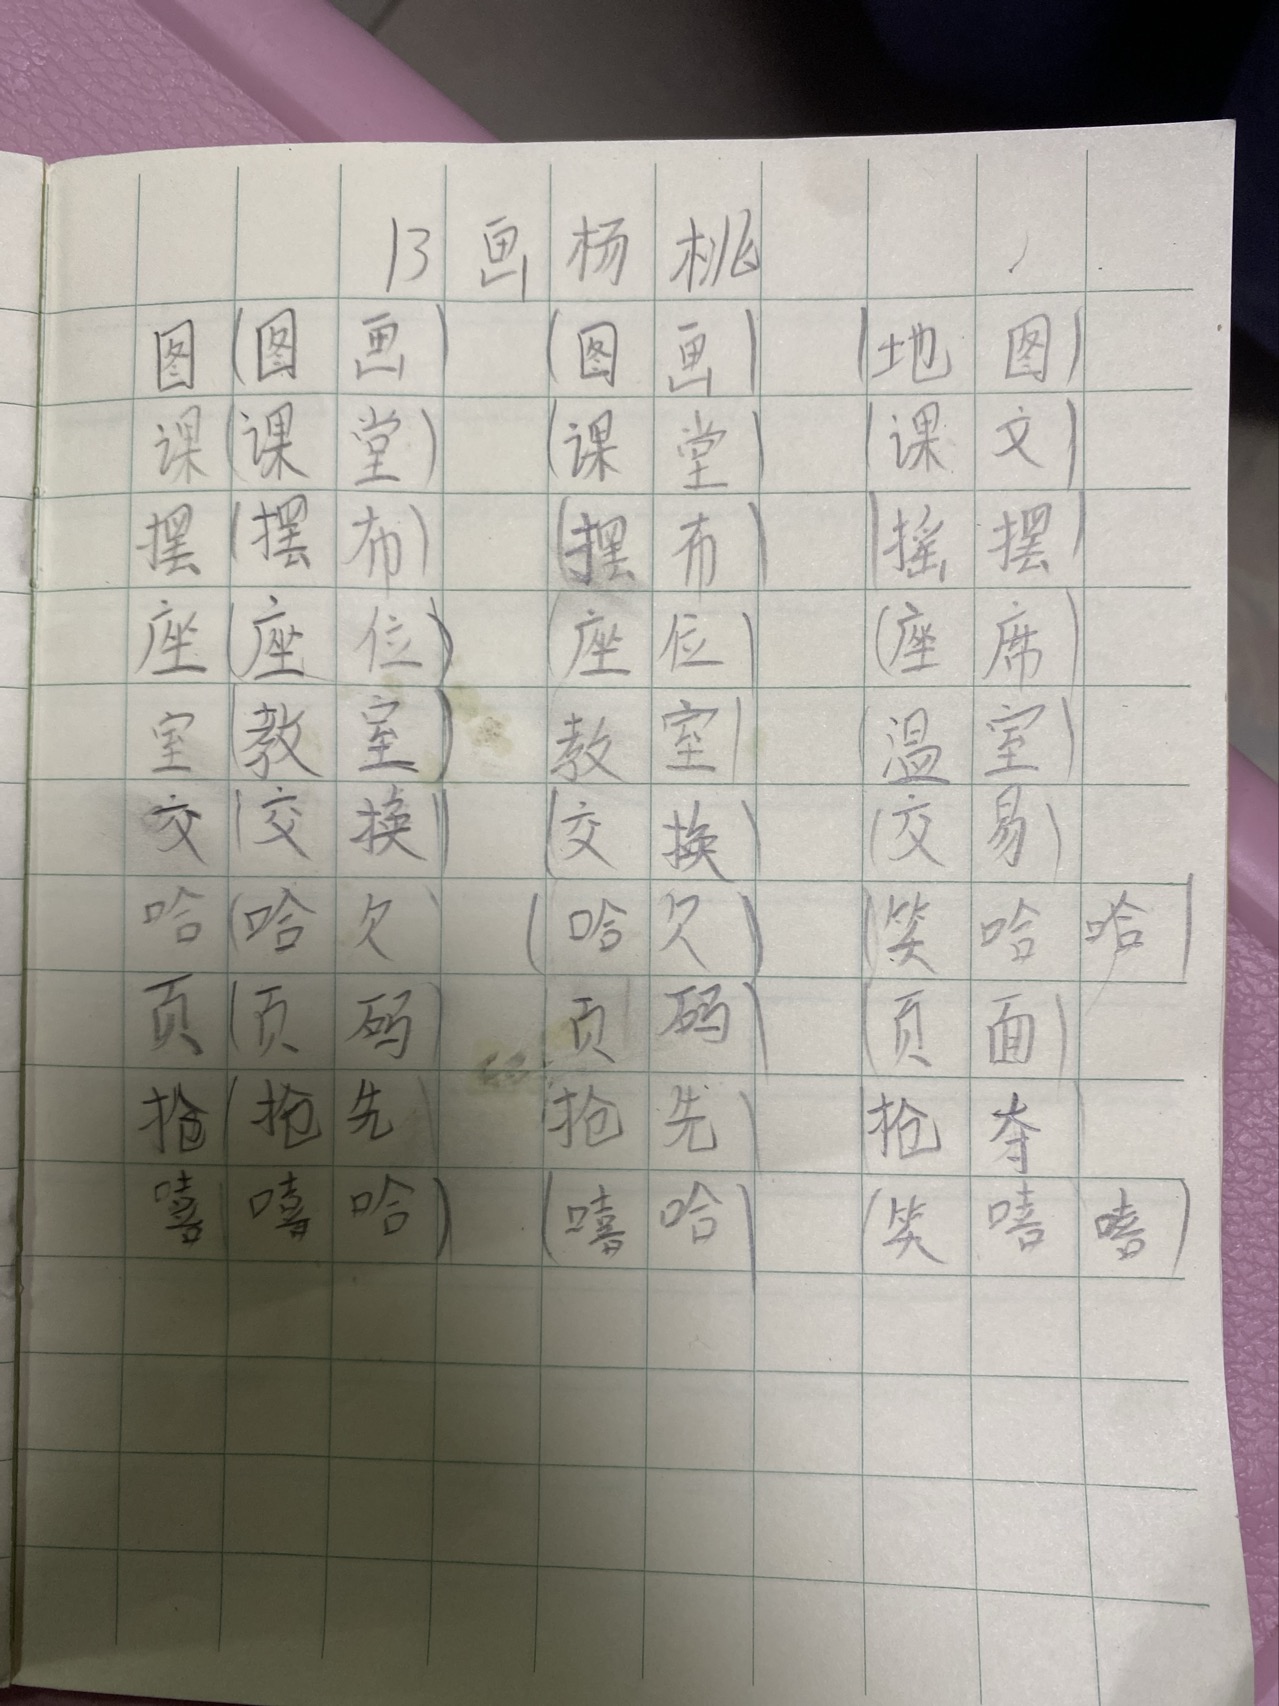 13 画杨桃
图(图画) (图画) (地图)
课(课堂) (课堂) (课文)
摆(摆布) (摆布) (摇摆)
座(座位) (座位) (座席)
室(教室) 教室) (温室)
交(交换) (交换) (交易)
哈(哈欠) (哈欠) (笑哈哈)
页(页码) 页码) (页面)
抢(抢先) 抢先) (抢夺
嘻 嘻哈) (嘻哈) (笑嘻嘻)